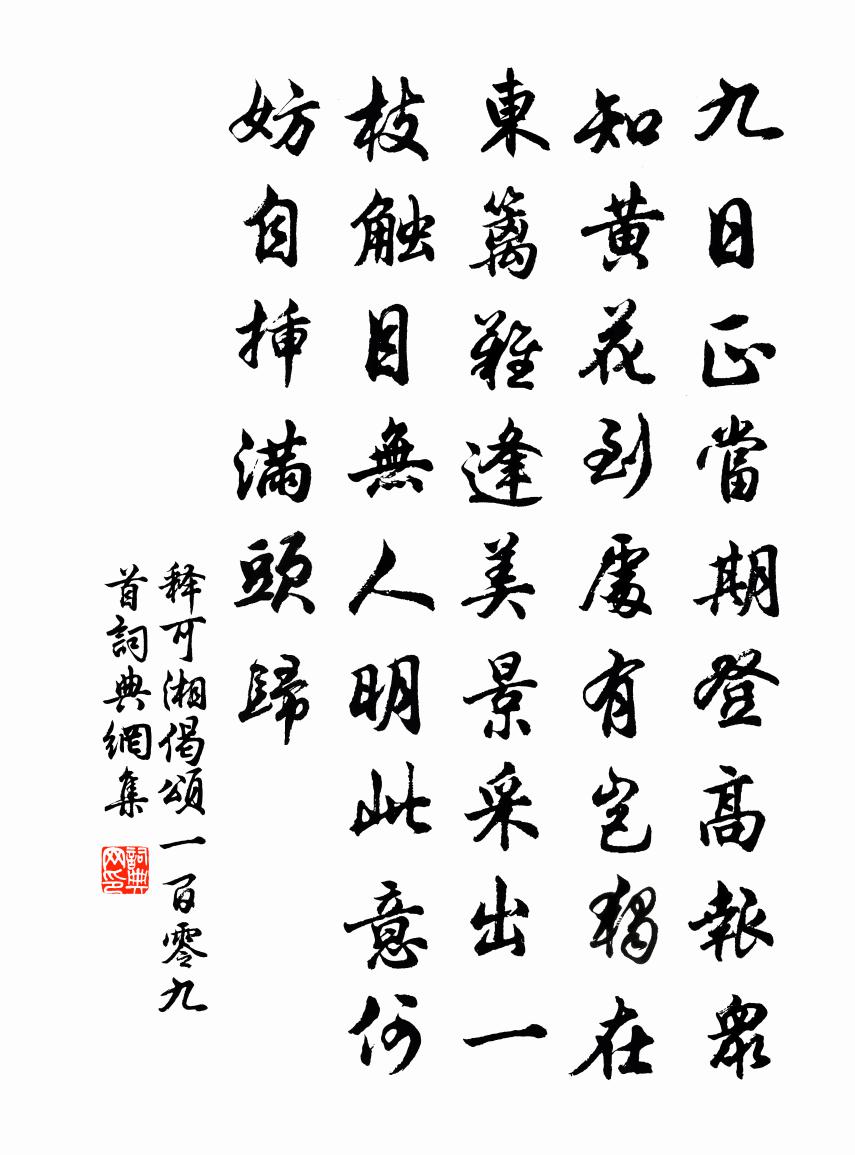 九日正當期登高報衆
知黄花到處有豈獨在
東籬難逢美景采出一
枝触目無人明此意何
妨自挿滿頭歸
释可湘偈頌一百零九
首詞典網集
詞典
网印